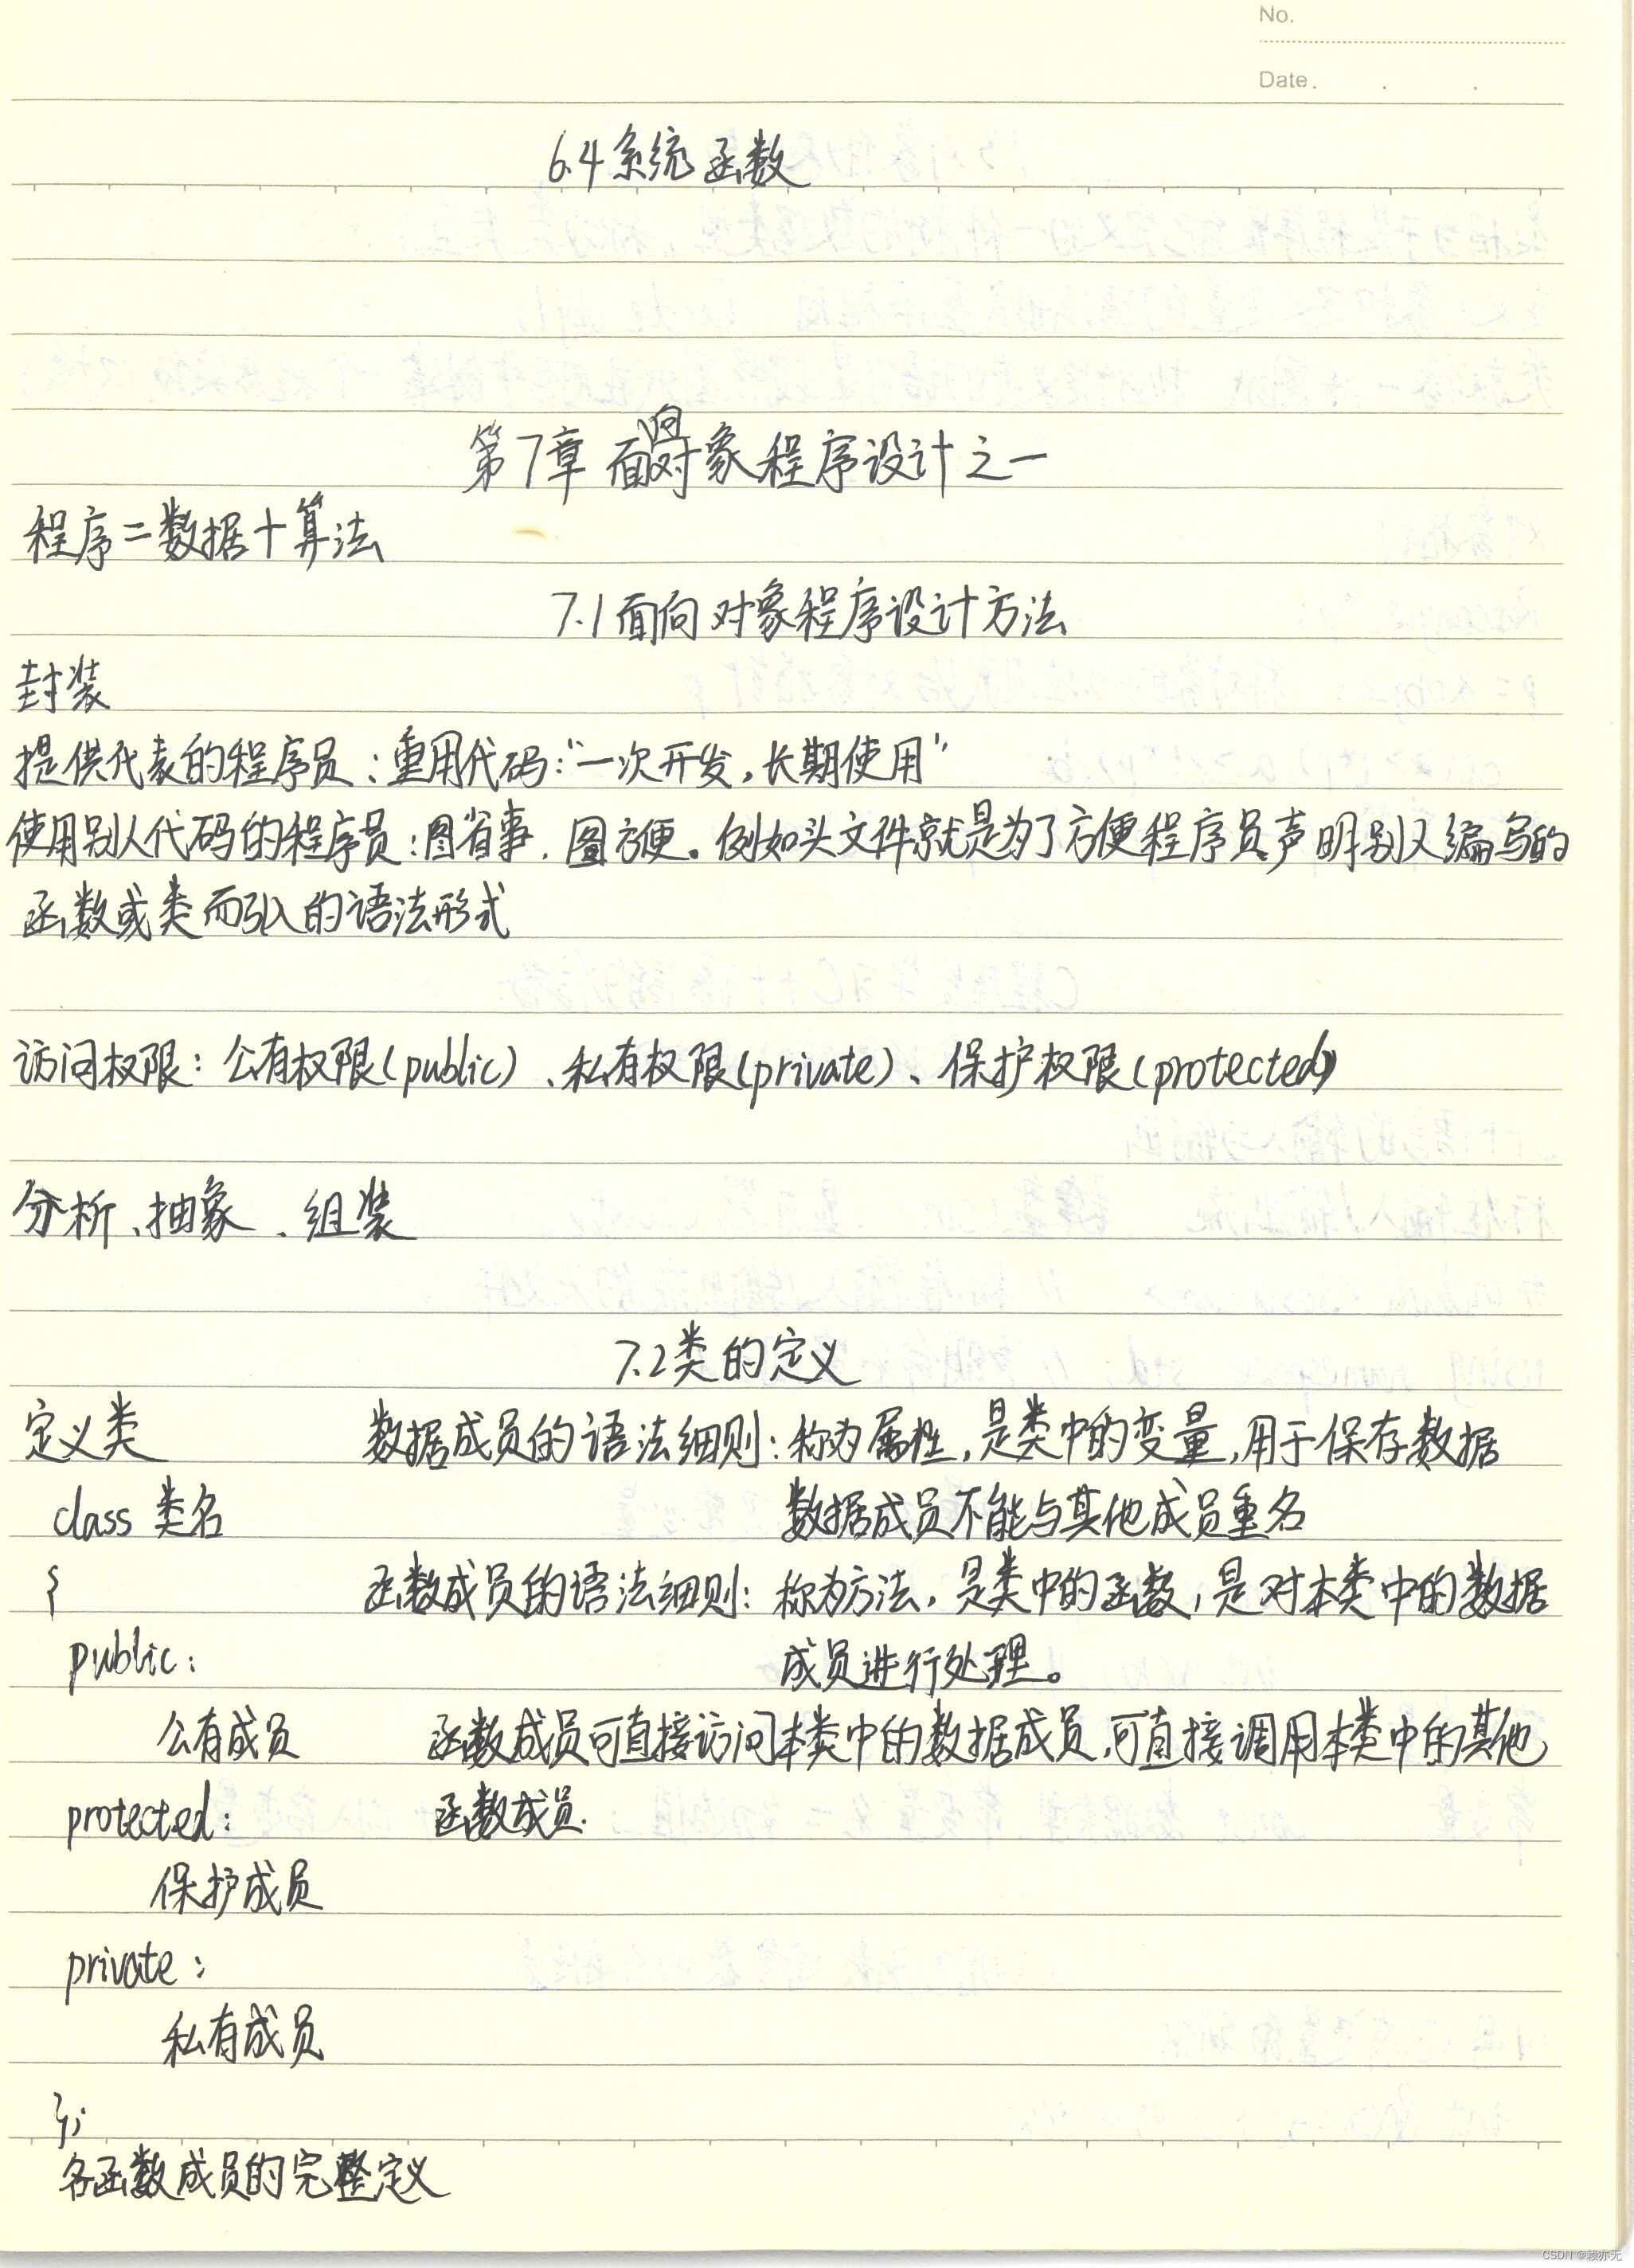 No.
Date.
6.4系统函数
第7章 面向对象程序设计之一
程序=数据+算法
7.1面向对象程序设计方法
封装
提供代表的程序员:重用代码:"一次开发,长期使用"
使用别人代码的程序员:图省事、图方便。例如头文件就是为了方便程序员声明别人编写的
函数或类而引入的语法形式
访问权限:公有权限(public)、私有权限(private)、保护权限(protected)
分析、抽象、组装
7.2类的定义
定义类 数据成员的语法细则:称为属性,是类中的变量,用于保存数据
class 类名 数据成员不能与其他成员重名
{ 函数成员的语法细则:称为方法,是类中的函数,是对本类中的数据
public: 成员进行处理。
公有成员 函数成员可直接访问本类中的数据成员,可直接调用本类中的其他
protected: 函数成员.
保护成员
private:
私有成员
};
各函数成员的完整定义
CSDN @赖亦无